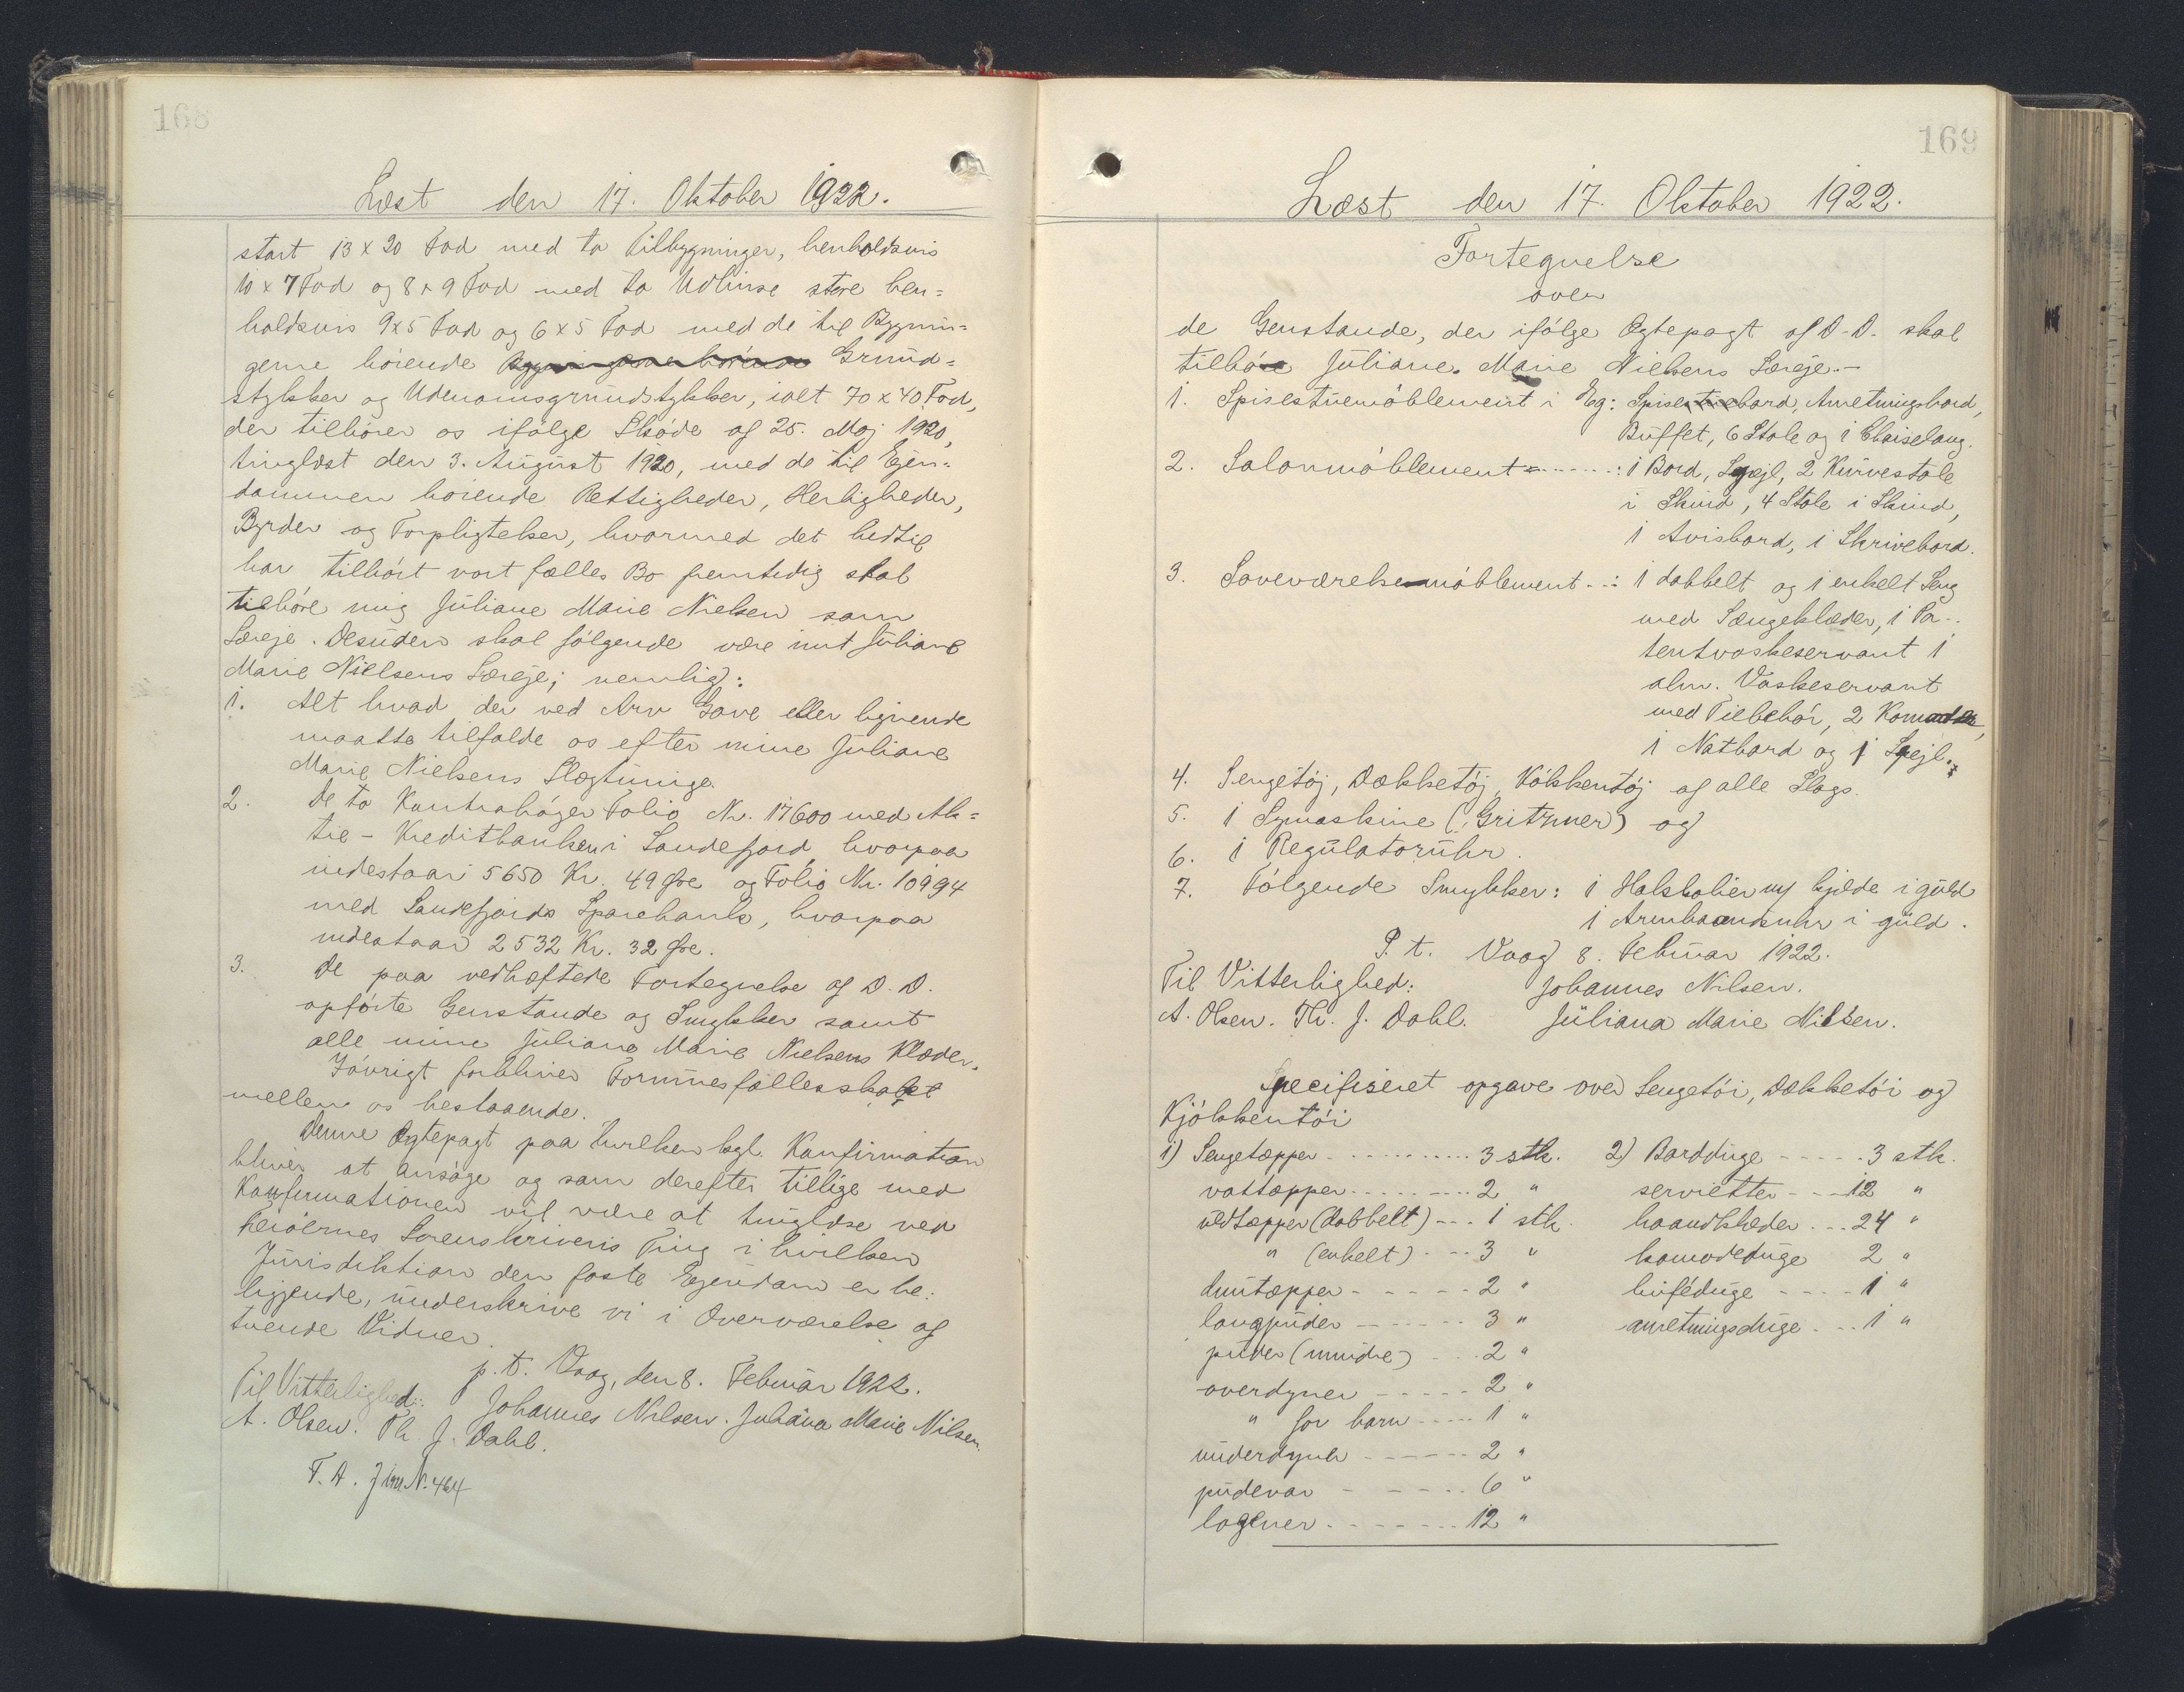 168
Læst den 17. Oktober 1922.
stort 13 x 20 Fod med to Tilbygninger, henholdsvis
10 x 7 Fod og 8 x 9 Fod med to Udhuse store hen=
holdsvis 9x5 Fod og 6x5 Fod med de til Bygnin=
gerne hörende Grund=
stykker og Udenomsgrundstykker, ialt 70 x 40 Fod,
der tilhører os ifölge Sköde af 25. Maj 1920,
tinglæst den 3. August 1920, med de til Ejen=
dommen hörende Rettigheder, Herligheder,
Byrder og Forpligtelser, hvormed det hidtil
har tilhört vort fælles Bo fremtidig skal
tilhöre mig Juliane Marie Nielsen som
Særeje. Desuden skal fölgende være mit Juliane
Marie Nielsens Særeje; nemlig:
1. Alt hvad der ved Arv Gave eller lignende
maatte tilfalde os efter mine Juliane
Marie Nielsens Slægtninge.
2. De to Kontraböger Folio Nr. 17600 med Ak=
tie-Kreditbanken i Sandefjord, hvorpaa
indestaar 5650 Kr. 49 Øre og Folio Nr. 10994
med Sandefjords Sparebank, hvorpaa
indestaar 2532 Kr. 32 Øre.
3. De paa vedhæftede Fortegnelse af D.D.
opförte Genstande og Smykker samt
alle mine Juliane Marie Nielsens Klæder.
Iövrigt forbliver Formuesfællesskabet
mellem os bestaaende.
Denne Ægtepagt paa hvilken kgl. Konfirmation
bliver at ansöge og som derefter tillige med
Konfirmationen vil være at tinglæse ved
Færöernes Sorenskriveris Ting i hvilken
Jurisdiktion den faste Ejendom er be=
liggende, underskrive vi i Overværelse af
tvende Vidner.
p.t. Vaag, den 8. Februar 1922.
Til Vitterlighed: Johannes Nilsen. Juliana Marie Nilsen.
A. Olsen. Th. J. Dahl.
F. A. Jour. N. 464
169
Læst den 17. Oktober 1922.
Fortegnelse
over
de Genstande, der ifölge Ægtepagt af D.D. skal
tilhöre Juliane Marie Nielsens Særeje.-
1. Spisestuemöblement i Eg: Spisebord, Anretningsbord,
Buffet, 6 Stole og 1 Chaiselong.
2. Salonmöblement: 1 Bord, Spejl, 2 Kurvestole
i Skind, 4 Stole i Skind,
1 Avisbord, 1 Skrivebord.
3. Soveværelsemöblement: 1 dobbelt og 1 enkelt Seng
med Sængeklæder, 1 Pa-
tentvaskeservant 1
alm. Vaskeservant
med Tilbehör, 2 Komoder,
1 Natbord og 1 Spejl.
4. Sengetöj, Dækketöj, Kökkentöj af alle Slags.
5. 1 Symaskine (Gritzner) og
6. 1 Regulatoruhr.
7. Fölgende Smykker: 1 Halskolier m/ kjede i guld
1 Armbaandsuhr i guld.
P. t. Vaag 8. Februar 1922.
Til Vitterlighed: Johannes Nilsen.
A. Olsen. Th. J. Dahl. Juliana Marie Nilsen.
Specifiseret opgave over Sengetöi, Dækketöi og
Kjökkentöi
1) Sengetæpper 3 stk. 2) Borddüge 3 stk.
vattæpper 2 " servietter 12 "
uldtæpper (dobbelt) 1 stk. haandklæder 24 "
" (enkelt) 3 " komodedüge 2 "
duntæpper 2 " bufédüge 1 "
langpuder 3 " anretningsdüge 1 "
puder (mindre) 2 "
overdyner 2 "
" for barn 1 "
underdyner 2 "
pudevar 6 "
lagener 12 "